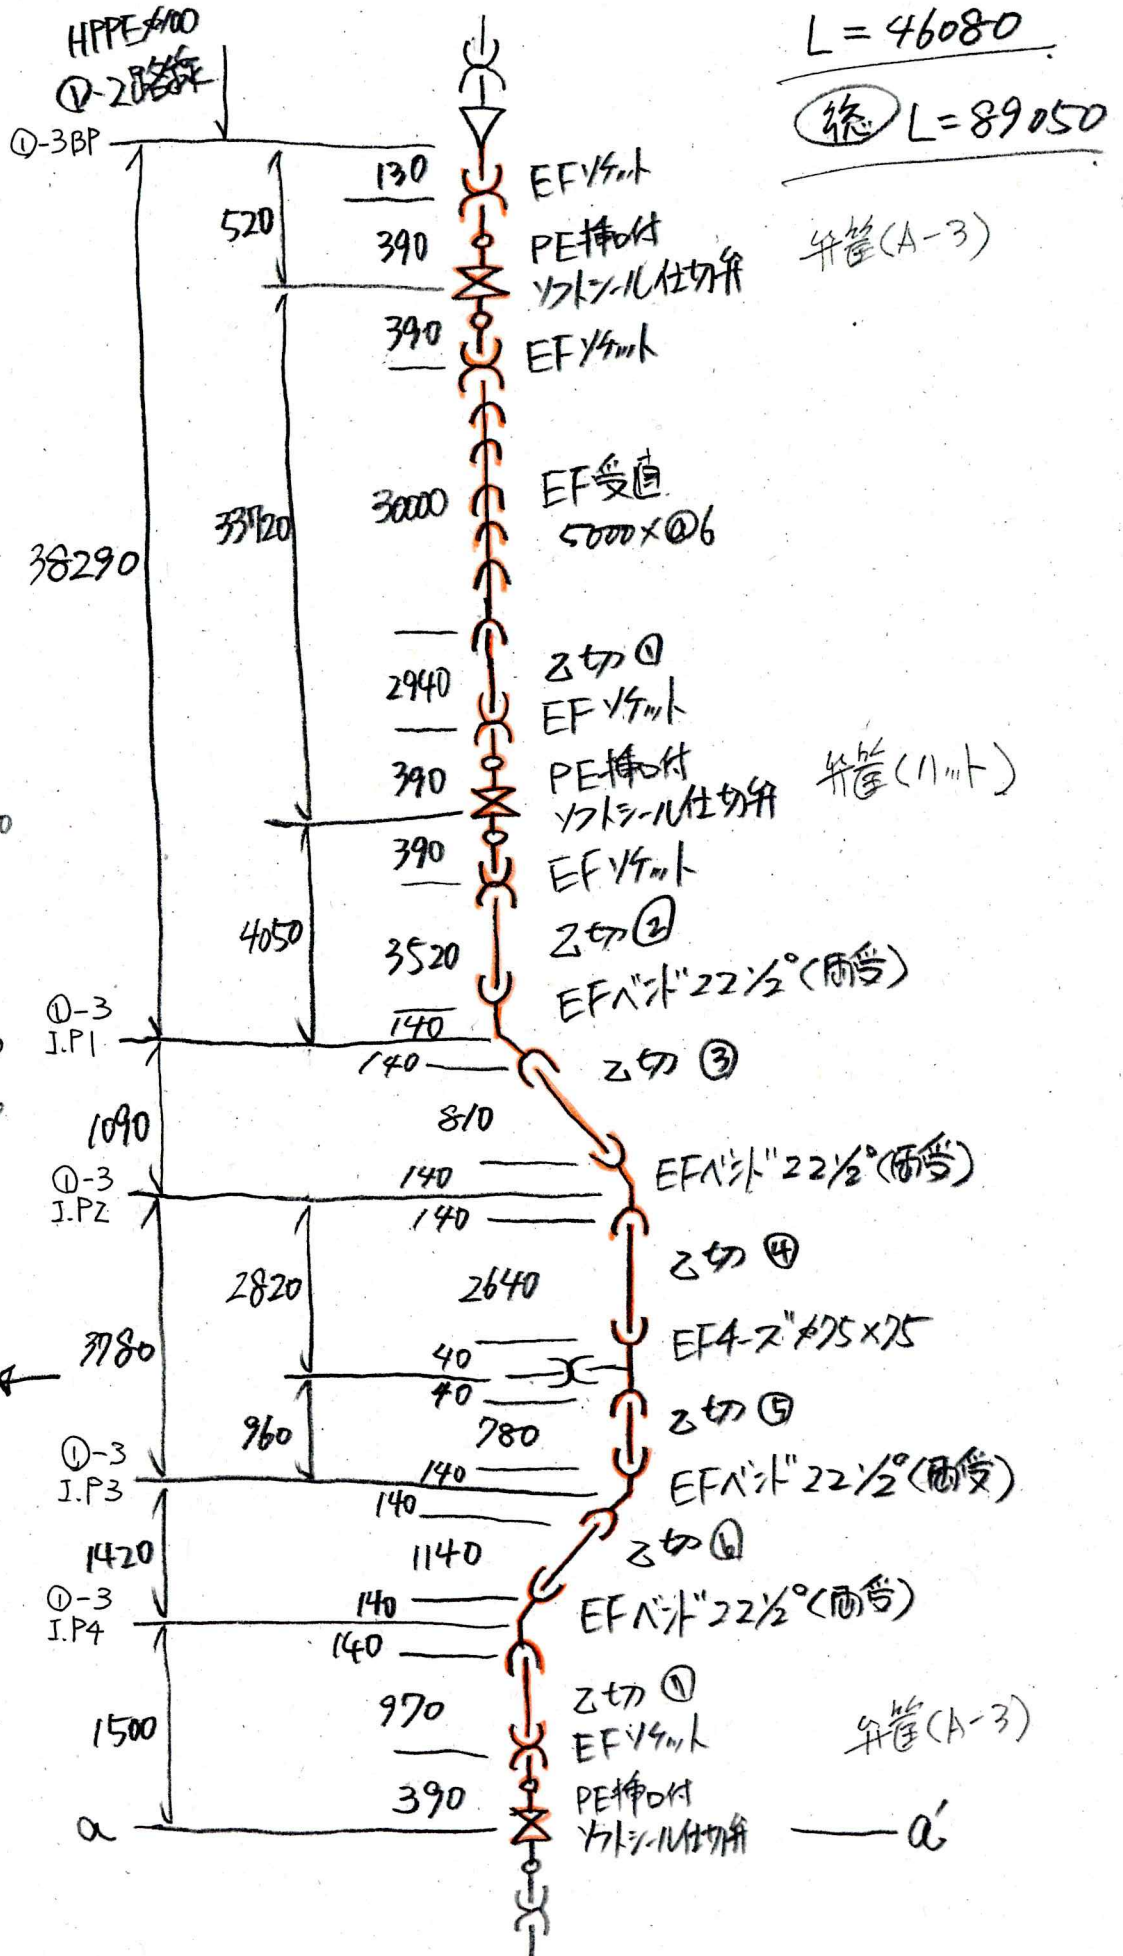 HPPEφ100
①-2路線
L=46080
総 L=89050
①-3BP
130
EFソケット
520
390
PE挿口付
ソフトシール仕切弁
弁筺(A-3)
390
EFソケット
38290
33720
30000
EF受直
5000×@6
2940
乙切①
EFソケット
390
PE挿口付
ソフトシール仕切弁
弁筺(ハット)
390
EFソケット
4050
3520
乙切②
EFベンド22½°(両受)
140
①-3
I.P1
140
乙切③
810
1090
EFベンド22½°(両受)
140
①-3
I.P2
140
乙切④
2820
2640
EFチーズφ75×75
3780
40
40
乙切⑤
960
780
①-3
I.P3
140
EFベンド22½°(両受)
140
1420
1140
乙切⑥
①-3
I.P4
140
EFベンド22½°(両受)
140
970
乙切⑦
EFソケット
1500
弁筺(A-3)
390
PE挿口付
ソフトシール仕切弁
a
a′